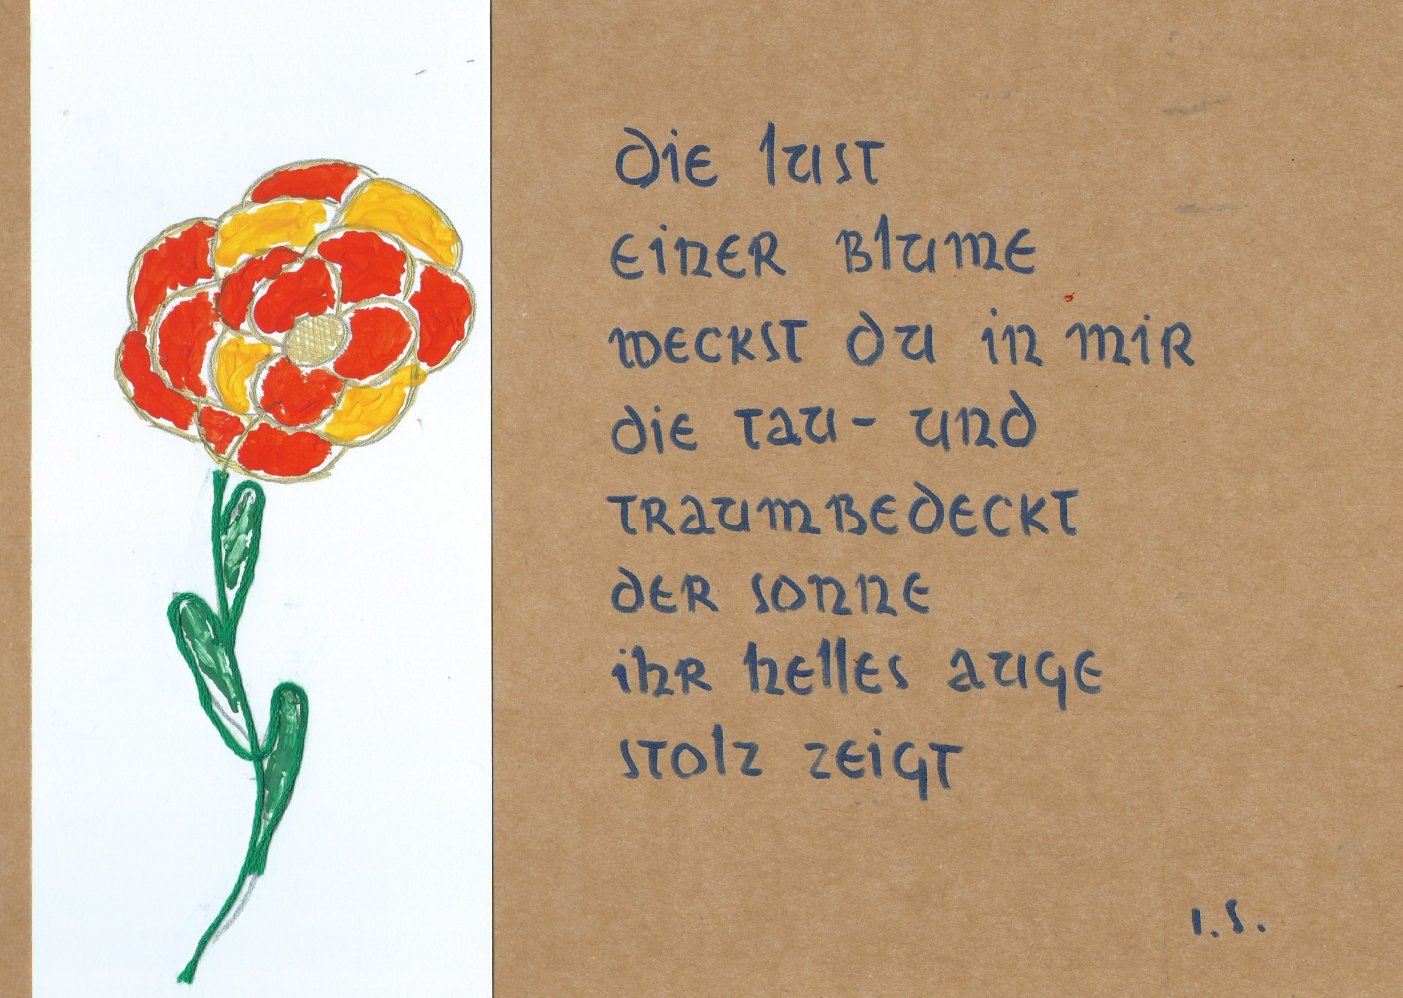 die lust
einer blume
weckst du in mir
die tau- und
traumbedeckt
der sonne
ihr helles auge
stolz zeigt
I.S.